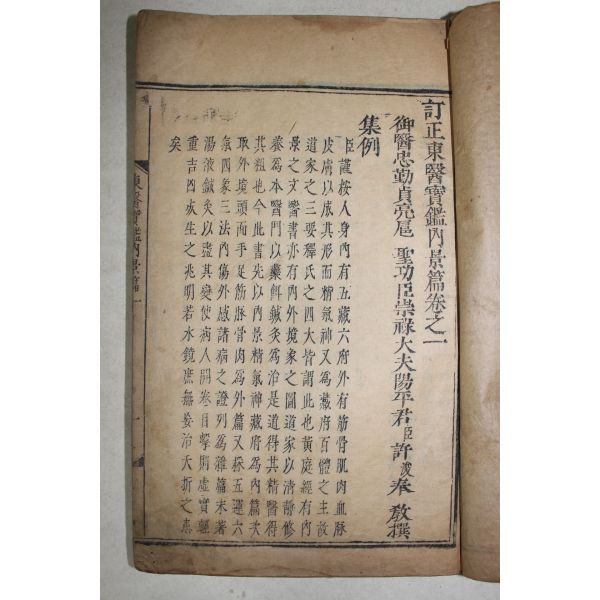 訂正東醫寶鑑內景篇卷之一
御醫忠勤貞亮扈 聖功臣崇祿大夫陽平君臣許浚奉 敎撰
集例
臣謹按人身內有五藏六府外有筋骨肌肉血脉
皮膚以成其形而精氣神又爲藏府百體之主故
道家之三要釋氏之四大皆謂此也黃庭經有內
景之文醫書亦有內外境象之圖道家以淸靜修
養爲本醫門以藥餌鍼灸爲治是道得其精醫得
其粗也今此書先以內景精氣神藏府爲內篇次
取外境頭面手足筋脉骨肉爲外篇又採五運六
氣四象三法內傷外感諸病之證列爲雜篇末著
湯液鍼灸以盡其變使病人開卷目擊則虛實輕
重吉凶死生之兆明若水鏡庶無妄治夭折之患
矣
東醫寶鑑內景篇一